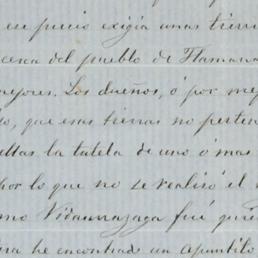 en precio exigía unas tierra
cerca del pueblo de Flamana
mejores. Los dueños, ó por mej
que esas tierras no perten
ellas la tutela de uno ó mas
por lo que no se realisó el
Vidaurrazaga fué quie
he encontrado un apuntito